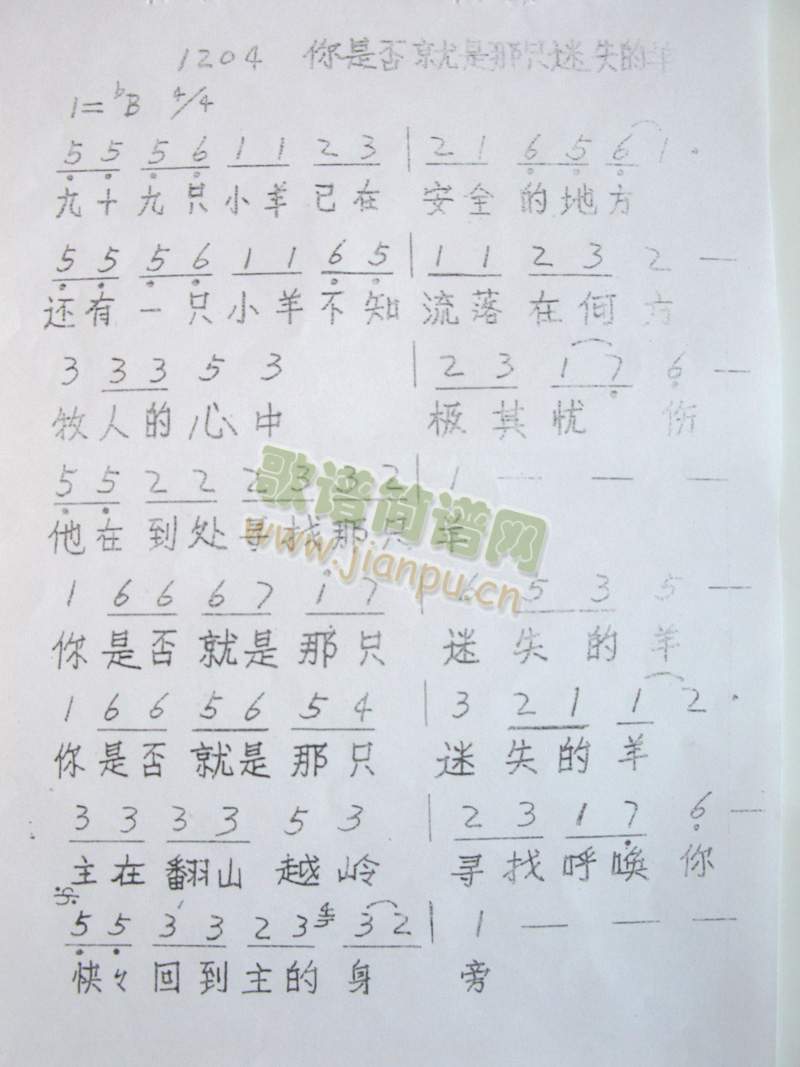 1204 你是否就是那只迷失的羊
1=ᵇB 4/4
5 5 5 6 1 1 2 3 | 2 1 6 5 6 1 ·
九十九只小羊已在 安全的地方
5 5 5 6 1 1 6 5 | 1 1 2 3 2 —
还有一只小羊不知 流落在何方
3 3 3 5 3 | 2 3 1 7 6 —
牧人的心中 极其忧 伤
5 5 2 2 2 3 3 2 | 1 — — —
他在到处寻找那只 羊
歌谱简谱网
www.jianpu.cn
1 6 6 6 7 1 7 | 6 5 3 5 —
你是否就是那只 迷失的羊
1 6 6 5 6 5 4 | 3 2 1 1 2 ·
你是否就是那只 迷失的羊
3 3 3 3 5 3 | 2 3 1 7 6 —
主在翻山越岭 寻找呼唤你
5 5 3 3 2 3 3 2 | 1 — — —
快々回到主的身 旁